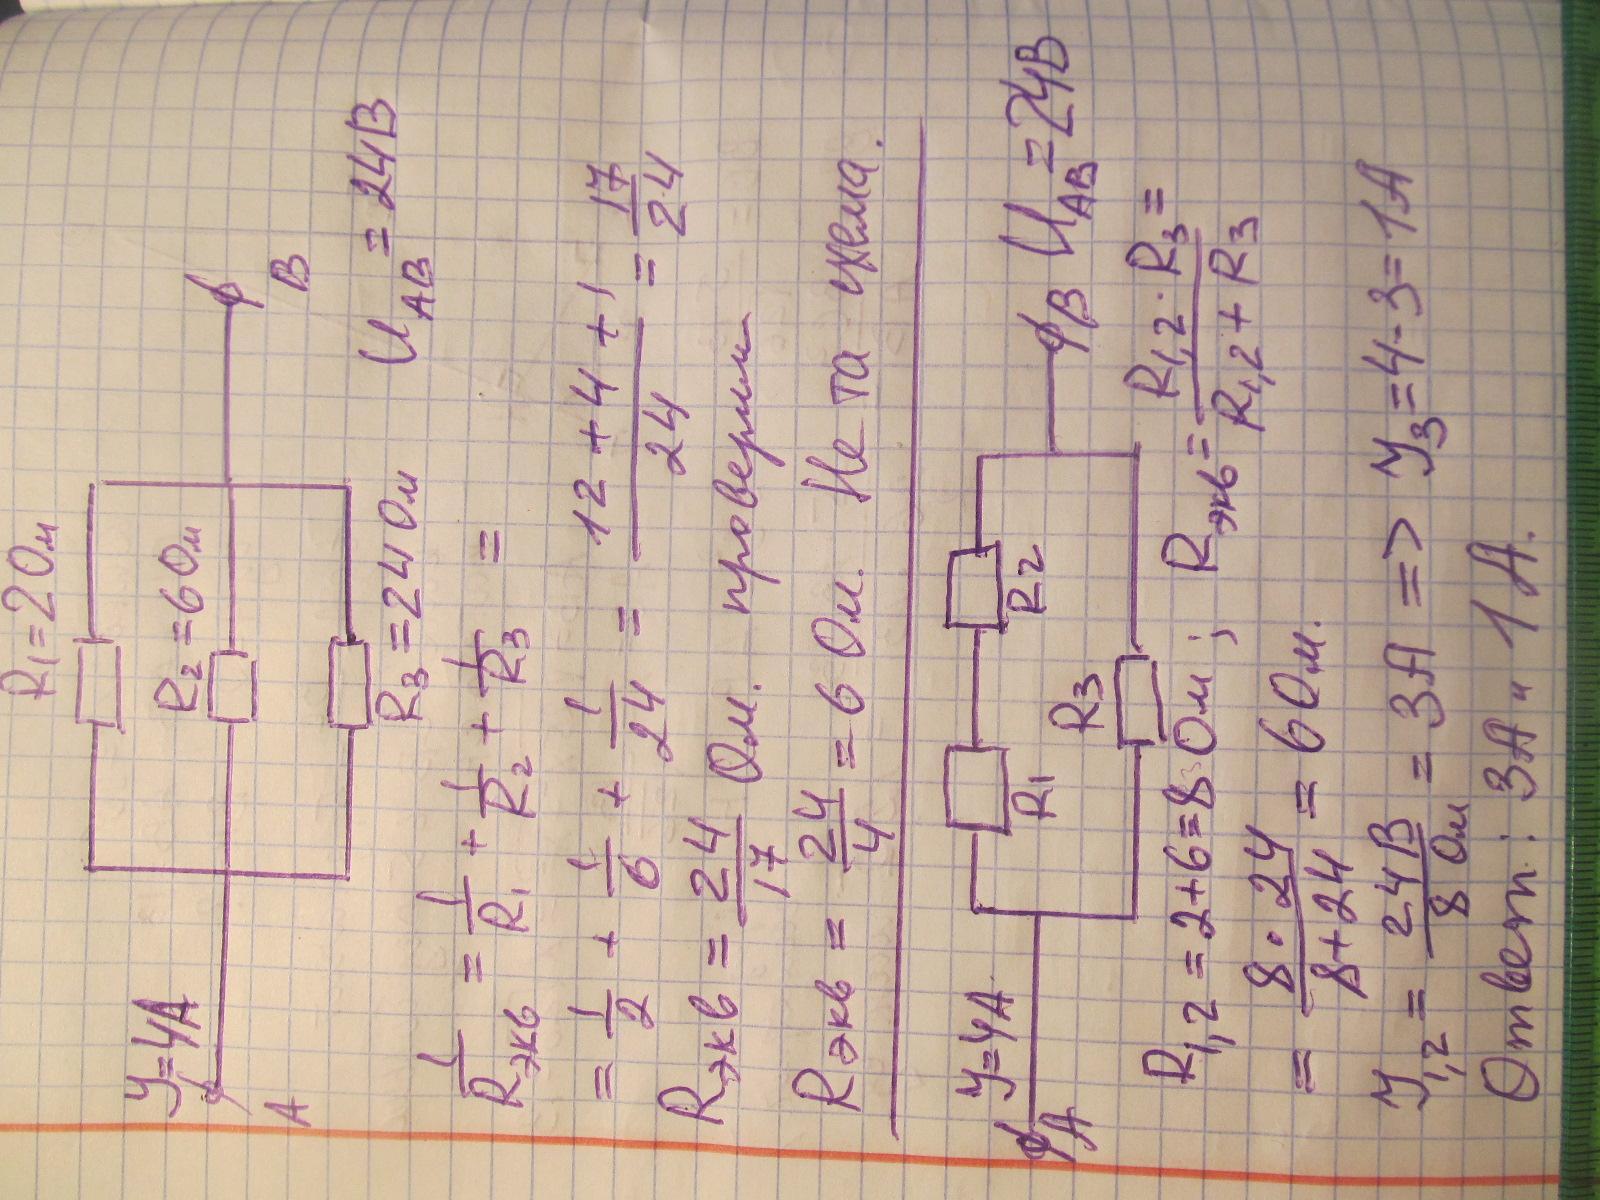 R₁=2 Ом
У=4А
R₂=6 Ом
А
В
R₃=24 Ом
U_AB=24В
1/Rэкв = 1/R₁ + 1/R₂ + 1/R₃ =
= 1/2 + 1/6 + 1/24 = (12+4+1)/24 = 17/24
Rэкв = 24/17 Ом. проверим
Rэкв = 24/4 = 6 Ом. Не та схема.
У=4А
R1
R2
А
В
U_AB=24В
R3
R₁,₂ = 2+6=8 Ом; Rэкв = (R₁,₂ · R₃)/(R₁,₂ + R₃) =
= (8·24)/(8+24) = 6 Ом.
У₁,₂ = 24В/8 Ом = 3А => У₃=4-3=1А
Ответ: 3А и 1А.